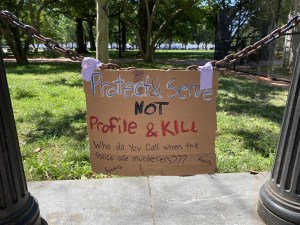 Protect & Serve
NOT
Profile & KILL
Who do You Call when the
Police are murderers???